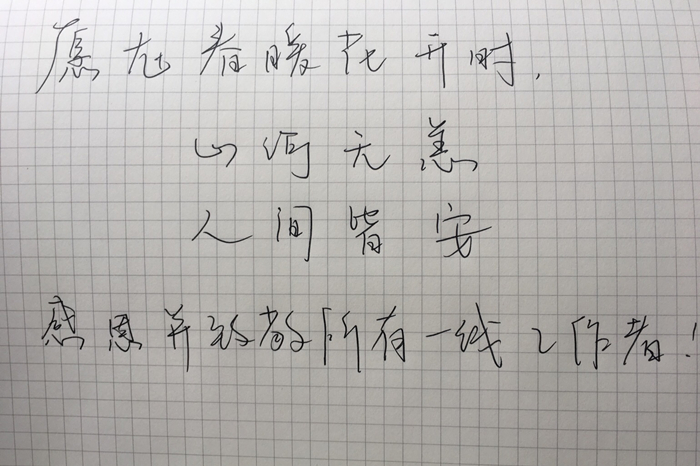 愿在春暖花开时，
山河无恙
人间皆安
感恩并致敬所有一线工作者！